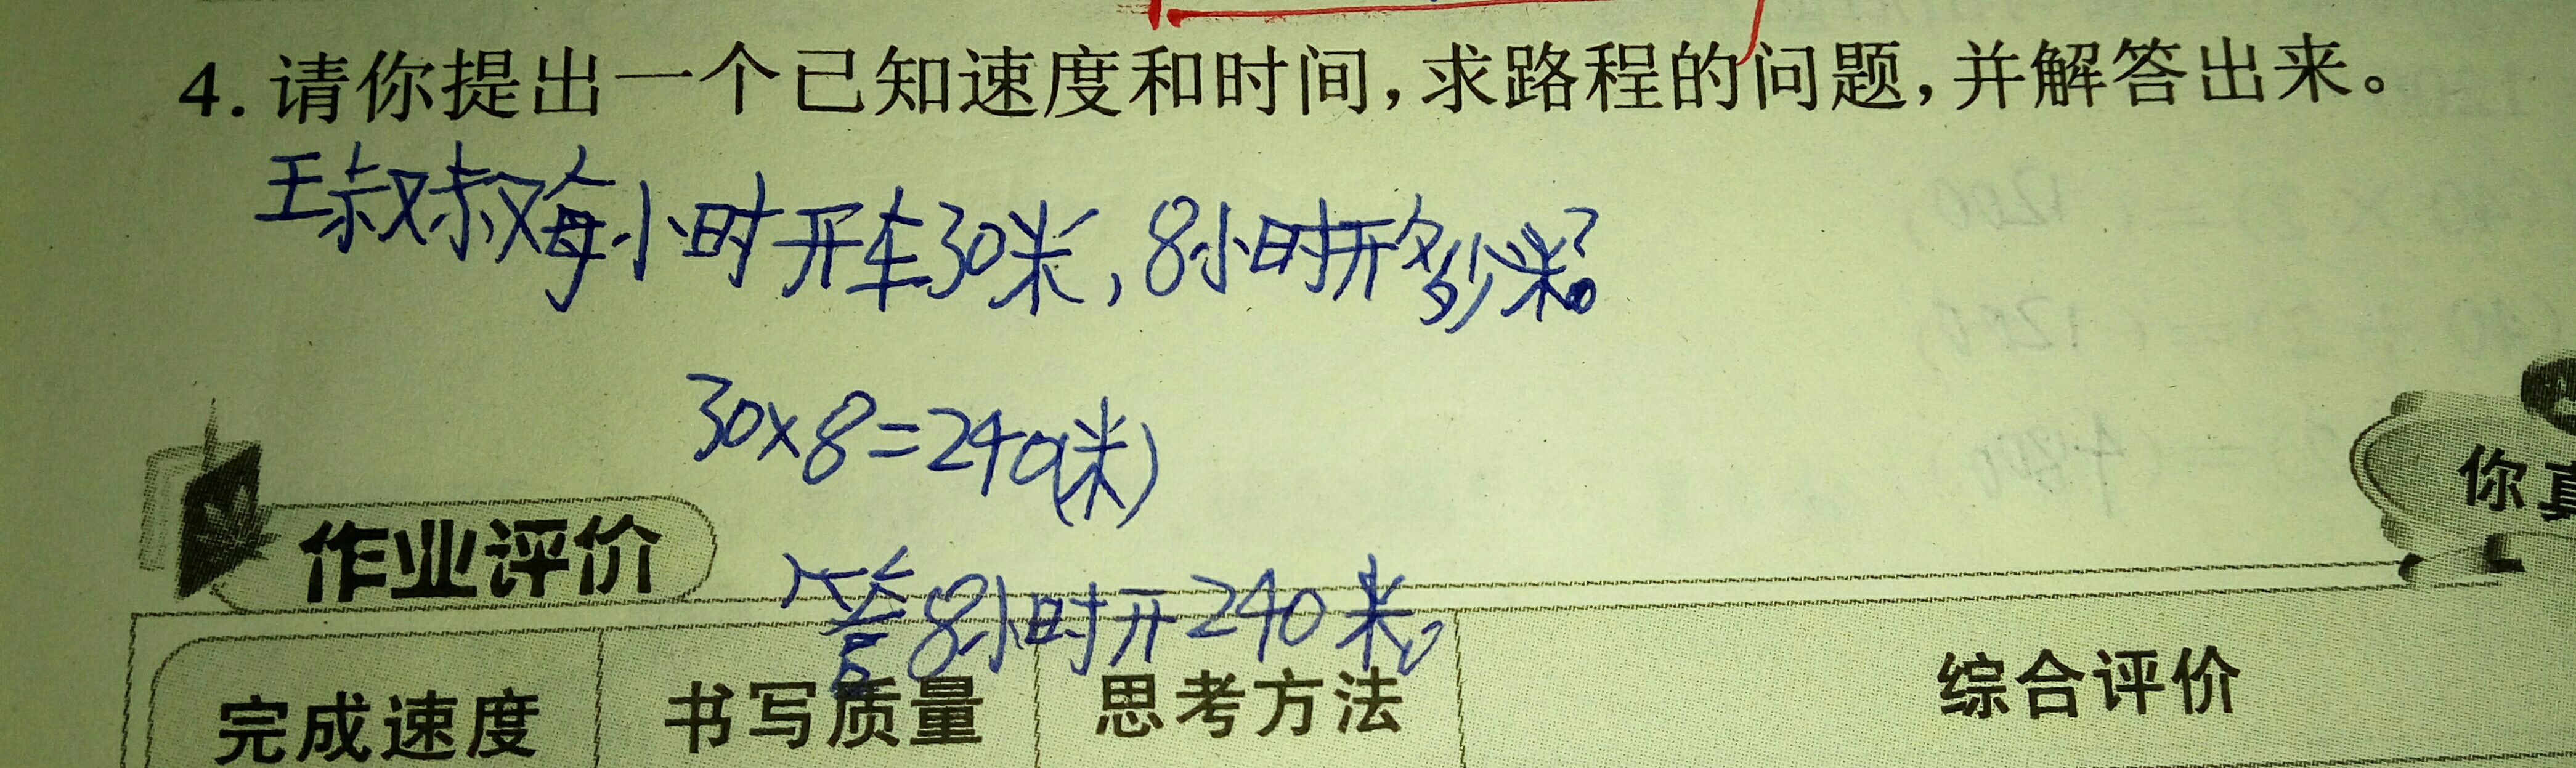 4. 请你提出一个已知速度和时间,求路程的问题,并解答出来。
王叔叔每小时开车30米,8小时开多少米?
30×8=240(米)
答8小时开240米。
作业评价
你真
完成速度 书写质量 思考方法 综合评价